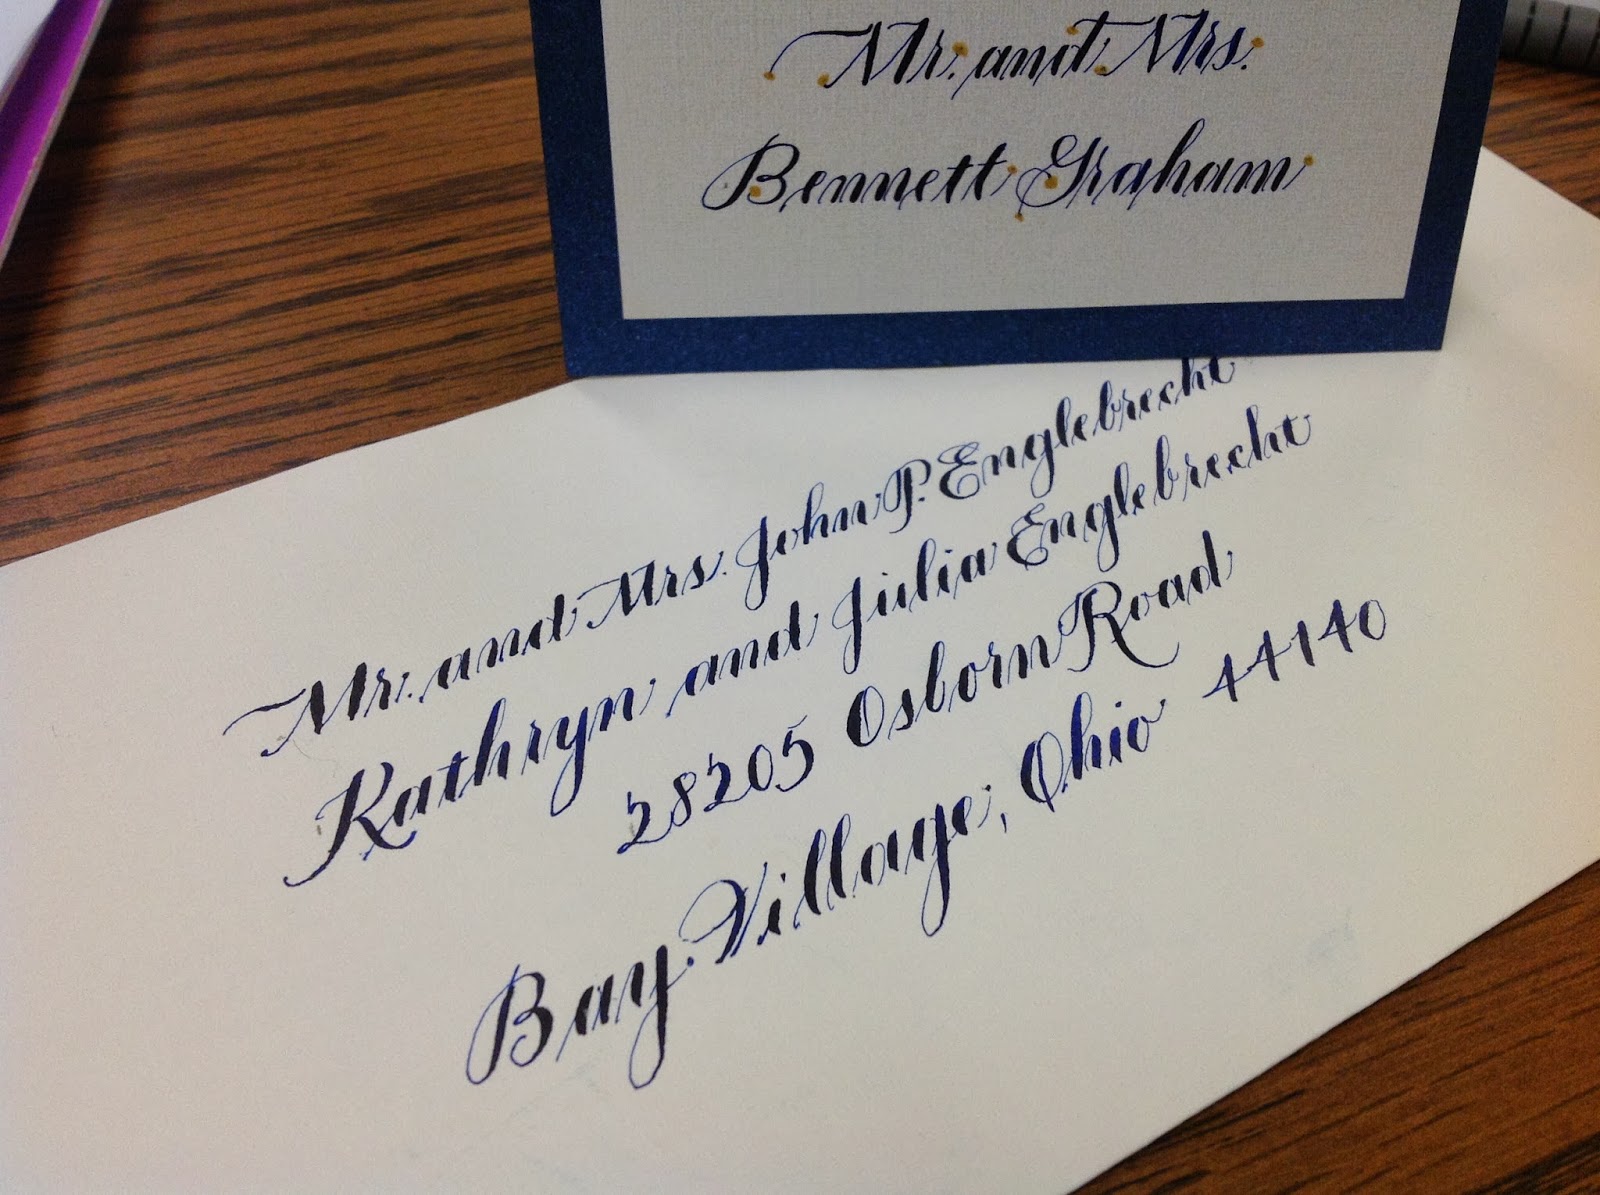 Mr. and Mrs.
Bennett Graham
Mr. and Mrs. John P. Englebrecht
Kathryn and Julia Englebrecht
28205 Osborn Road
Bay Village, Ohio 44140